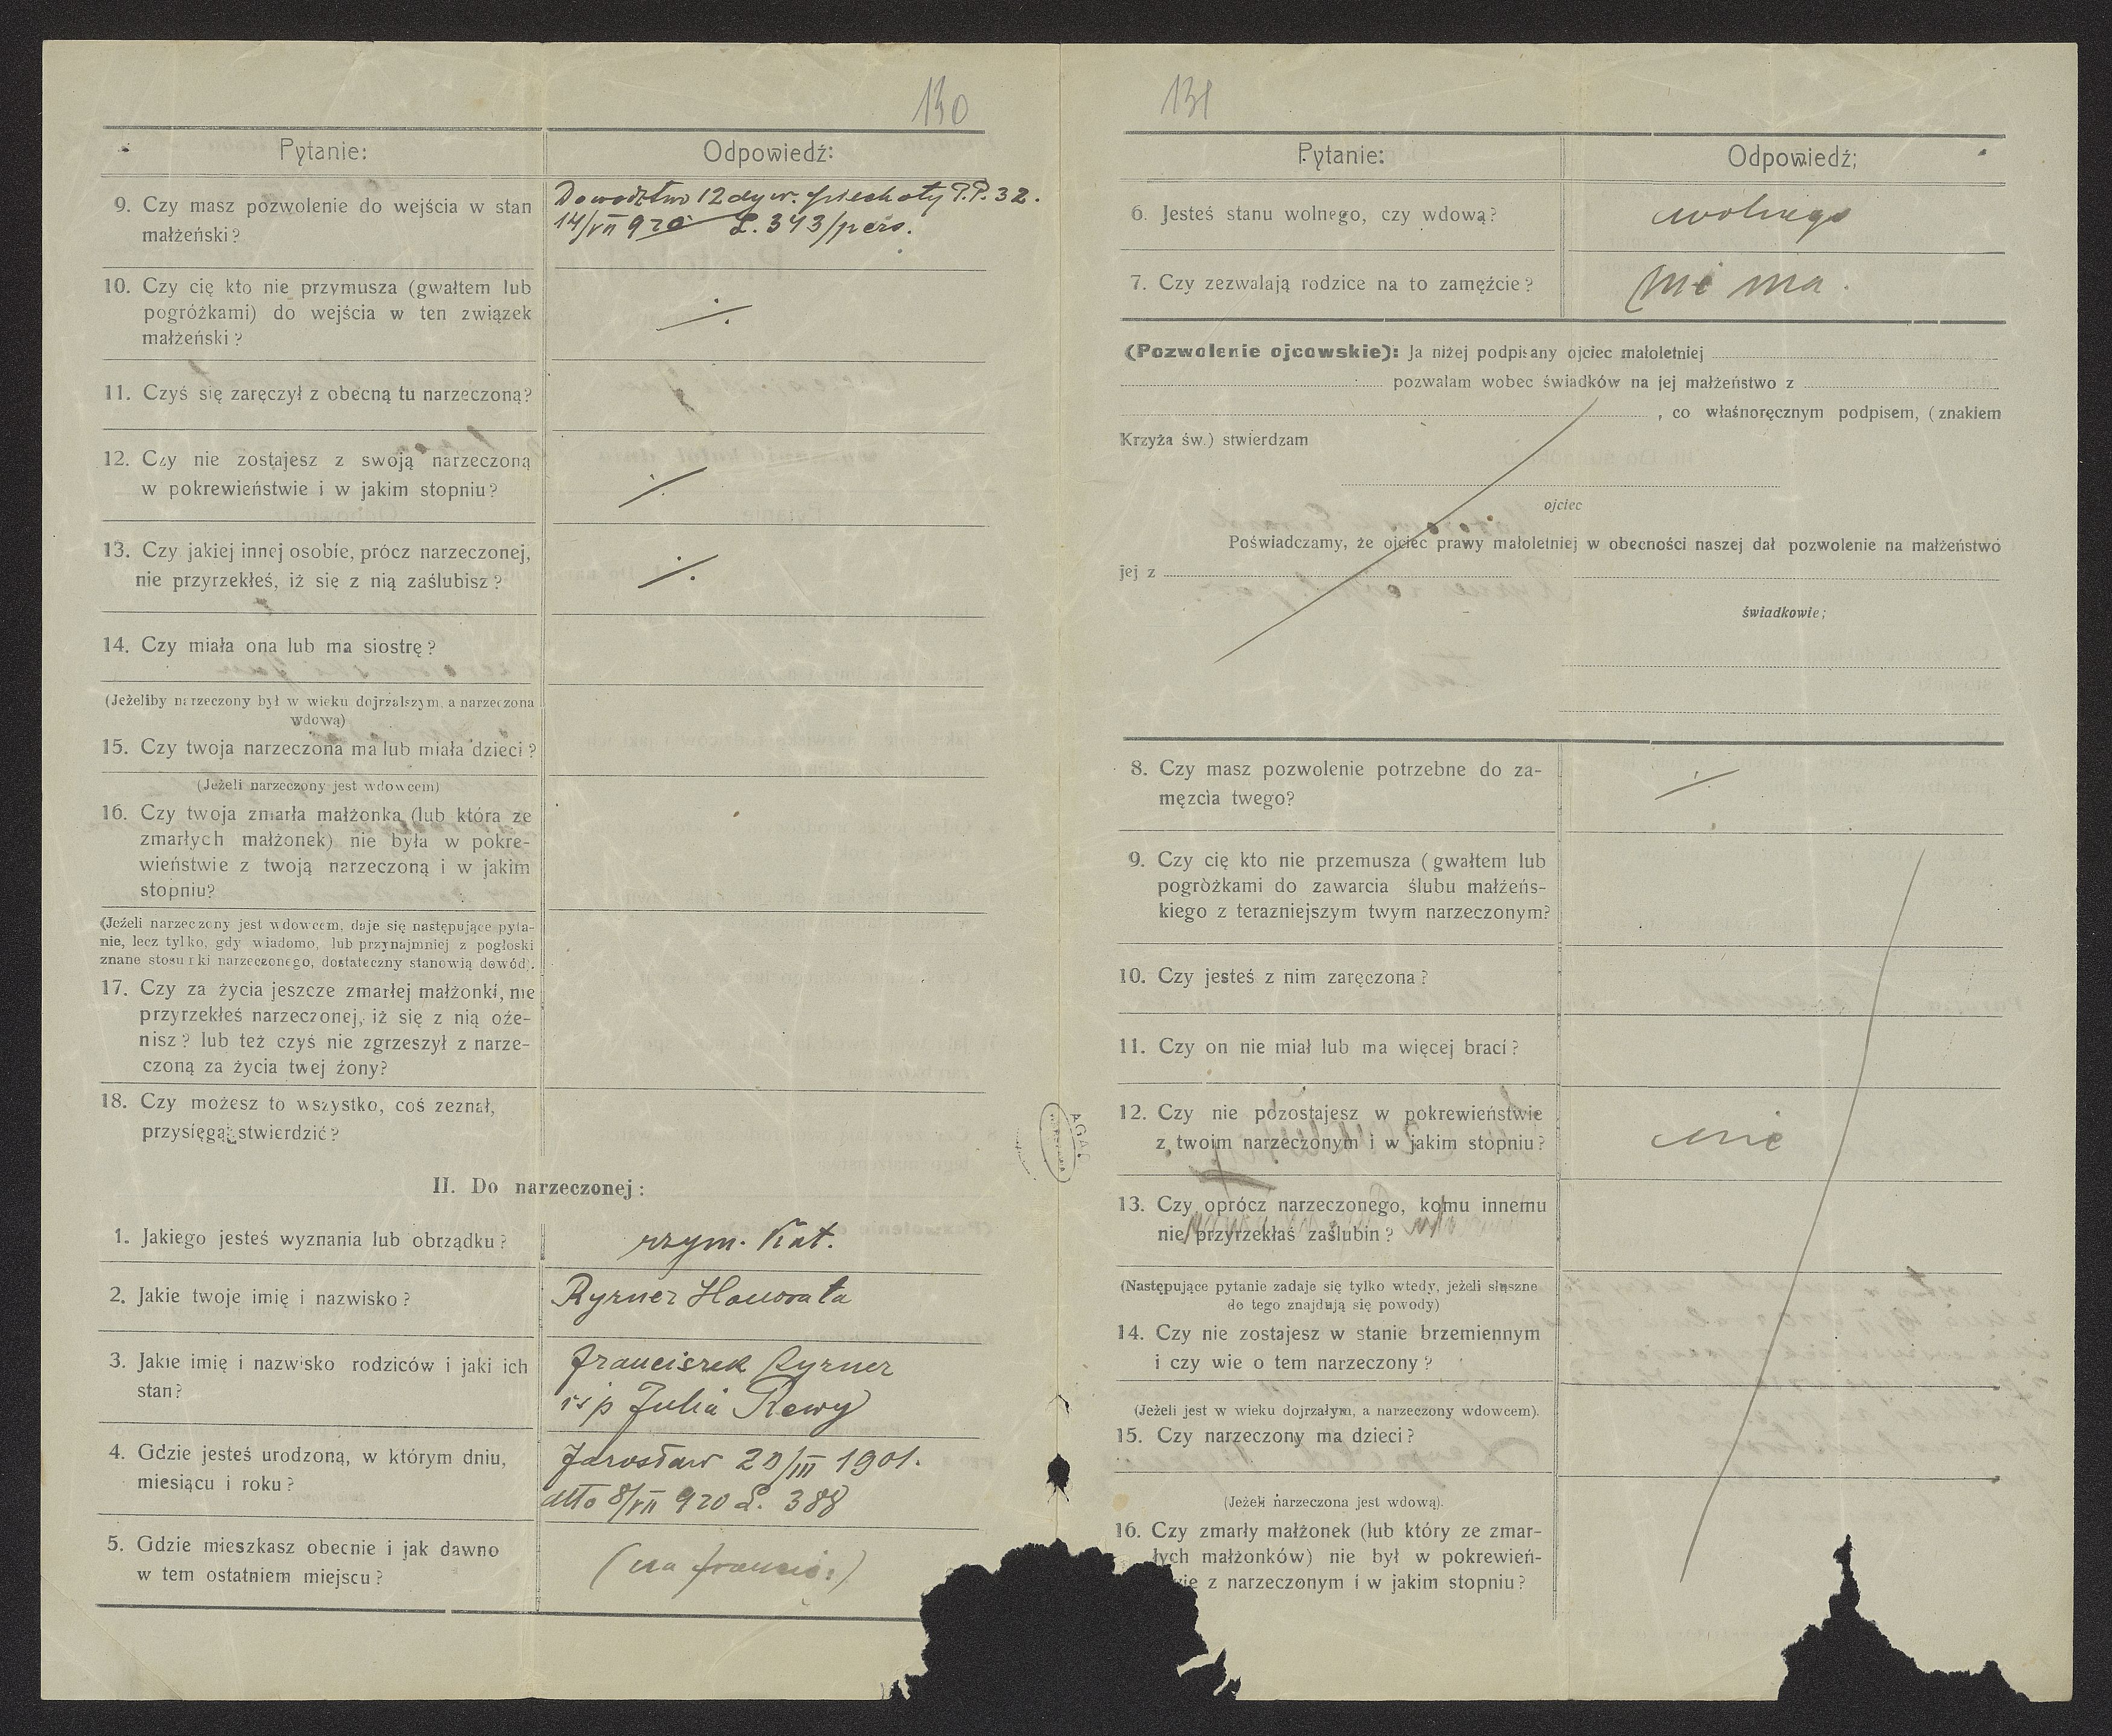 130
Pytanie:
Odpowiedź:
9. Czy masz pozwolenie do wejścia w stan
małżeński?
Dowództwo 12 dyw. piechoty P.P. 32.
14/VII 920 L. 343/pers.
10. Czy cię kto nie przymusza (gwałtem lub
pogróżkami) do wejścia w ten związek
małżeński?
·/.
11. Czyś się zaręczył z obecną tu narzeczoną?
12. Czy nie zostajesz z swoją narzeczoną
w pokrewieństwie i w jakim stopniu?
·/.
13. Czy jakiej innej osobie, prócz narzeczonej,
nie przyrzekłeś, iż się z nią zaślubisz?
·/.
14. Czy miała ona lub ma siostrę?
(Jeżeliby narzeczony był w wieku dojrzalszym, a narzeczona
wdową)
15. Czy twoja narzeczona ma lub miała dzieci?
(Jeżeli narzeczony jest wdowcem)
16. Czy twoja zmarła małżonka (lub która ze
zmarłych małżonek) nie była w pokre-
wieństwie z twoją narzeczoną i w jakim
stopniu?
(Jeżeli narzeczony jest wdowcem, daje się następujące pyta-
nie, lecz tylko, gdy wiadomo, lub przynajmniej z pogłoski
znane stosunki narzeczonego, dostateczny stanowią dowód).
17. Czy za życia jeszcze zmarłej małżonki, nie
przyrzekłeś narzeczonej, iż się z nią oże-
nisz? lub też czyś nie zgrzeszył z narze-
czoną za życia twej żony?
18. Czy możesz to wszystko, coś zeznał,
przysięgą stwierdzić?
II. Do narzeczonej:
1. Jakiego jesteś wyznania lub obrządku?
rzym. Kat.
2. Jakie twoje imię i nazwisko?
Ryrner Honorata
3. Jakie imię i nazwisko rodziców i jaki ich
stan?
Franciszek Ryrner
i śp Julia Rewy
4. Gdzie jesteś urodzoną, w którym dniu,
miesiącu i roku?
Jarosław 20/III 1901.
dtto 8/VII 920 L. 388
5. Gdzie mieszkasz obecnie i jak dawno
w tem ostatniem miejscu?
131
Pytanie:
Odpowiedź;
6. Jesteś stanu wolnego, czy wdową?
wolnego
7. Czy zezwalają rodzice na to zamęźcie?
nie ma.
(Pozwolenie ojcowskie): Ja niżej podpisany ojciec małoletniej
pozwalam wobec świadków na jej małżeństwo z
, co własnoręcznym podpisem, (znakiem
Krzyża św.) stwierdzam
ojciec
Poświadczamy, że ojciec prawy małoletniej w obecności naszej dał pozwolenie na małżeństwo
jej z
świadkowie;
8. Czy masz pozwolenie potrzebne do za-
męzcia twego?
·/.
9. Czy cię kto nie przemusza (gwałtem lub
pogróżkami do zawarcia ślubu małżeńs-
kiego z terazniejszym twym narzeczonym?
10. Czy jesteś z nim zaręczona?
11. Czy on nie miał lub ma więcej braci?
12. Czy nie pozostajesz w pokrewieństwie
z twoim narzeczonym i w jakim stopniu?
nie
13. Czy oprócz narzeczonego, komu innemu
nie przyrzekłaś zaślubin?
(Następujące pytanie zadaje się tylko wtedy, jeżeli słuszne
do tego znajdują się powody)
14. Czy nie zostajesz w stanie brzemiennym
i czy wie o tem narzeczony?
(Jeżeli jest w wieku dojrzałym, a narzeczony wdowcem).
15. Czy narzeczony ma dzieci?
(Jeżeli narzeczona jest wdową).
16. Czy zmarły małżonek (lub który ze zmar-
łych małżonków) nie był w pokrewień-
wie z narzeczonym i w jakim stopniu?
AGAD